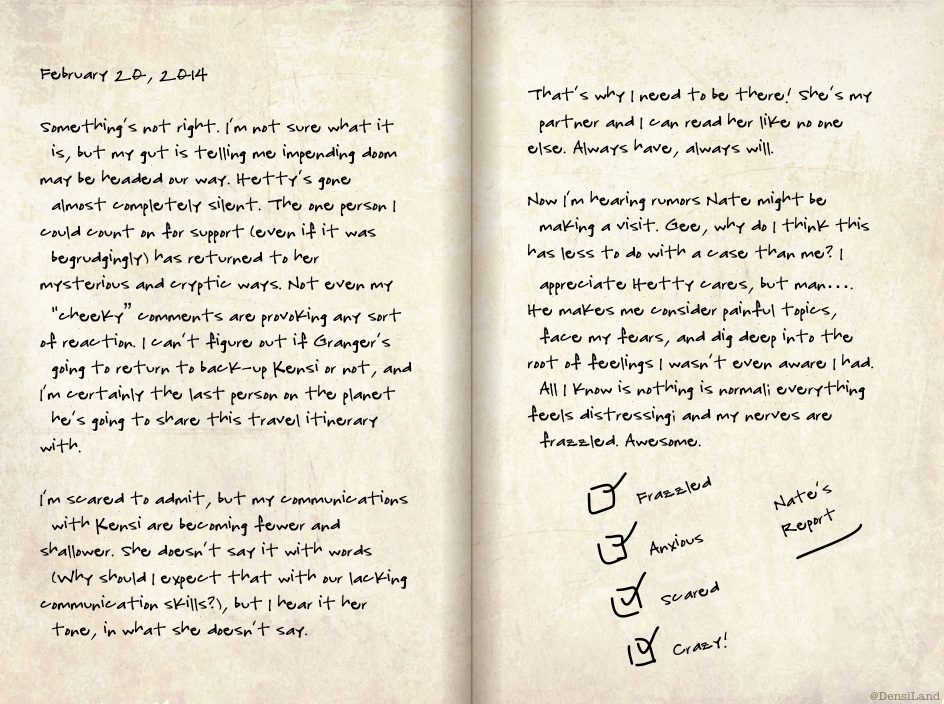 February 20, 2014
Something's not right. I'm not sure what it
is, but my gut is telling me impending doom
may be headed our way. Hetty's gone
almost completely silent. The one person I
could count on for support (even if it was
begrudgingly) has returned to her
mysterious and cryptic ways. Not even my
"cheeky" comments are provoking any sort
of reaction. I can't figure out if Granger's
going to return to back-up Kensi or not, and
I'm certainly the last person on the planet
he's going to share this travel itinerary
with.
I'm scared to admit, but my communications
with Kensi are becoming fewer and
shallower. She doesn't say it with words
(Why should I expect that with our lacking
communication skills?), but I hear it her
tone, in what she doesn't say.
That's why I need to be there! She's my
partner and I can read her like no one
else. Always have, always will.
Now I'm hearing rumors Nate might be
making a visit. Gee, why do I think this
has less to do with a case than me? I
appreciate Hetty cares, but man....
He makes me consider painful topics,
face my fears, and dig deep into the
root of feelings I wasn't even aware I had.
All I know is nothing is normal; everything
feels distressing; and my nerves are
frazzled. Awesome.
Frazzled
Anxious
Scared
Crazy!
Nate's
Report
@DensiLand